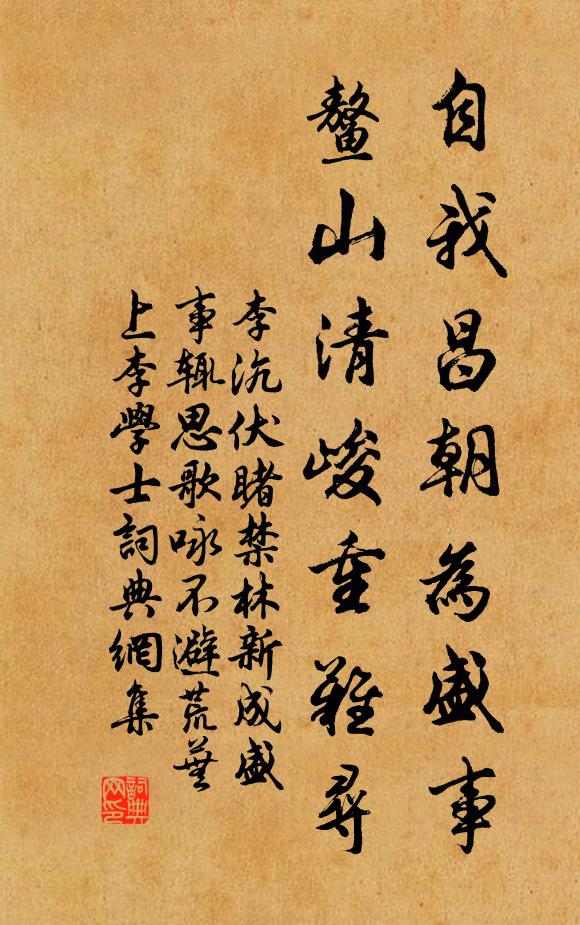 自我昌朝為盛事
鳌山清峻重難尋
李沆伏睹禁林新成盛
事辄思歌咏不避荒蕪
上李學士詞典網集
詞典网印